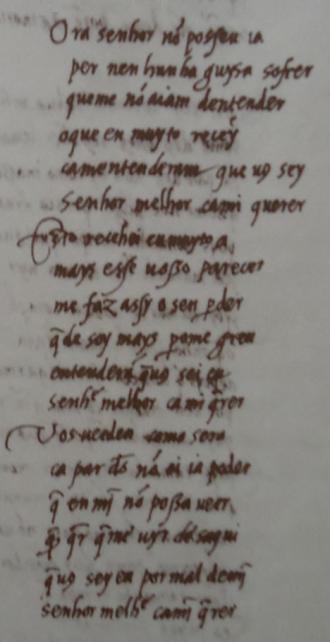 Ora senhor nō posseu ia
por nen hunha guysa sofrer
queme nō aiam dentender
oque eu muyto receÿ
camentenderam que uꝯ sey
senhor melhor cami querer
Esto recehei eu muyto a
mays esse uosso parecer
me faz assy o sen ꝑder
q̄ de soy mays ꝑome greu
entenderā q̄ uꝯ sei ca
senhr̄ melhor cami q̄rer
Vos ueedea como sera
ca par ds̄ nō ei ia poder
q̄ en mī nō possa ueer
q̄ q̄r q̄me uyr
q̄uꝯ sey eu por mal demī
senhor melhr̄ camī q̄rer